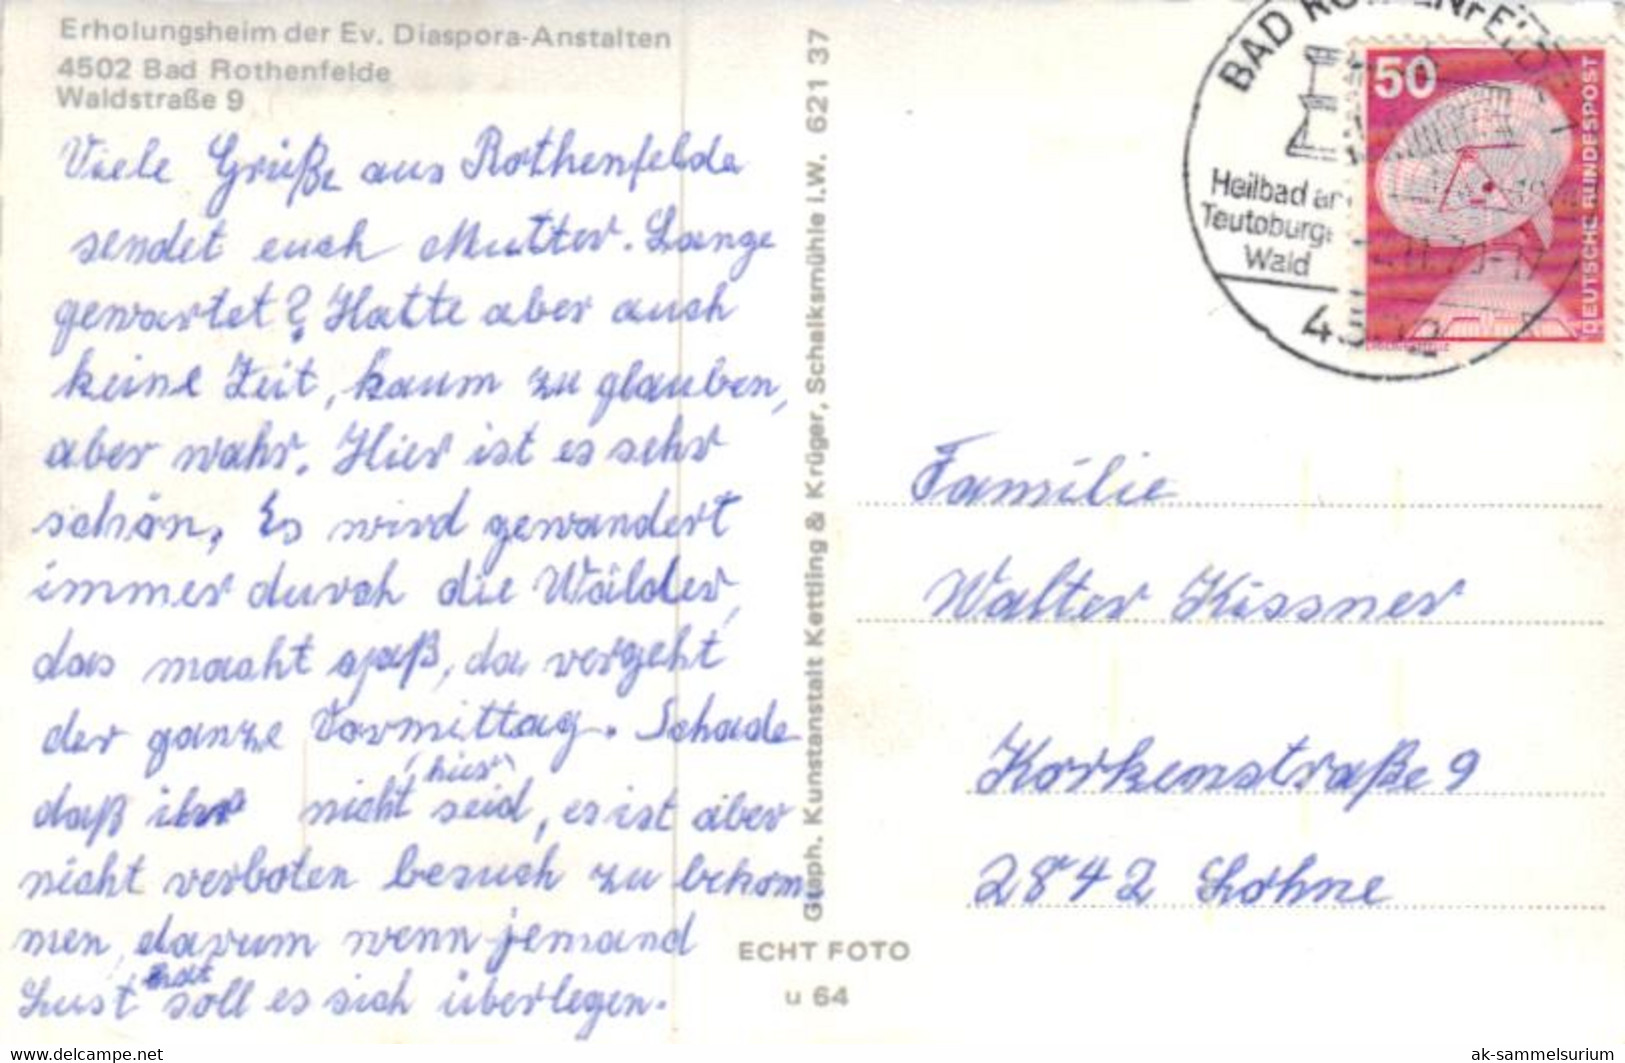 Erholungsheim der Ev. Diaspora-Anstalten
4502 Bad Rothenfelde
Waldstraße 9
Viele Grüße aus Rothenfelde
sendet euch Mutter. Lange
gewartet? Hatte aber auch
keine Zeit, kaum zu glauben,
aber wahr. Hier ist es sehr
schön. Es wird gewandert
immer durch die Wälder,
das macht spaß, da vergeht
der ganze Vormittag. Schade
daß ihr nicht (hier) seid, es ist aber
nicht verboten besuch zu bekom
men, darum wenn jemand
Lust hat soll es sich überlegen.
Graph. Kunstanstalt Kettling & Krüger, Schalksmühle i.W. 621 37
ECHT FOTO
u 64
BAD ROTHENFELDE
Heilbad am
Teutoburger
Wald
50
DEUTSCHE BUNDESPOST
Familie
Walter Kissner
Korkenstraße 9
2842 Lohne
www.delcampe.net
ak-sammelsurium